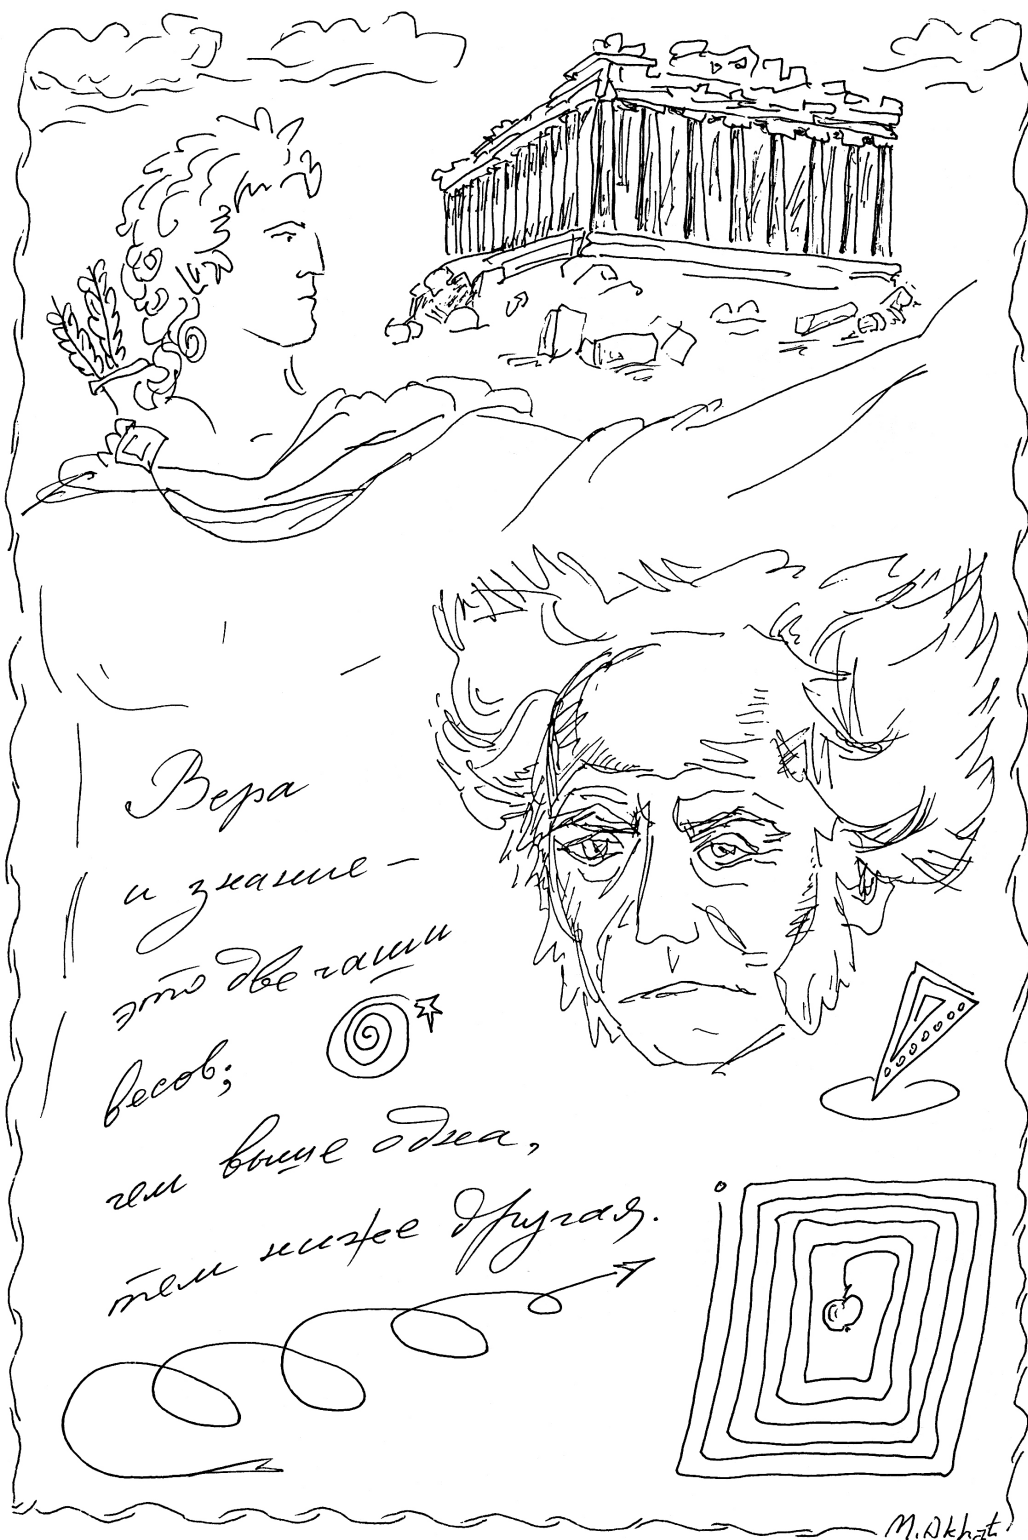 Вера
и знание –
это две чаши
весов;
чем выше одна,
тем ниже другая.